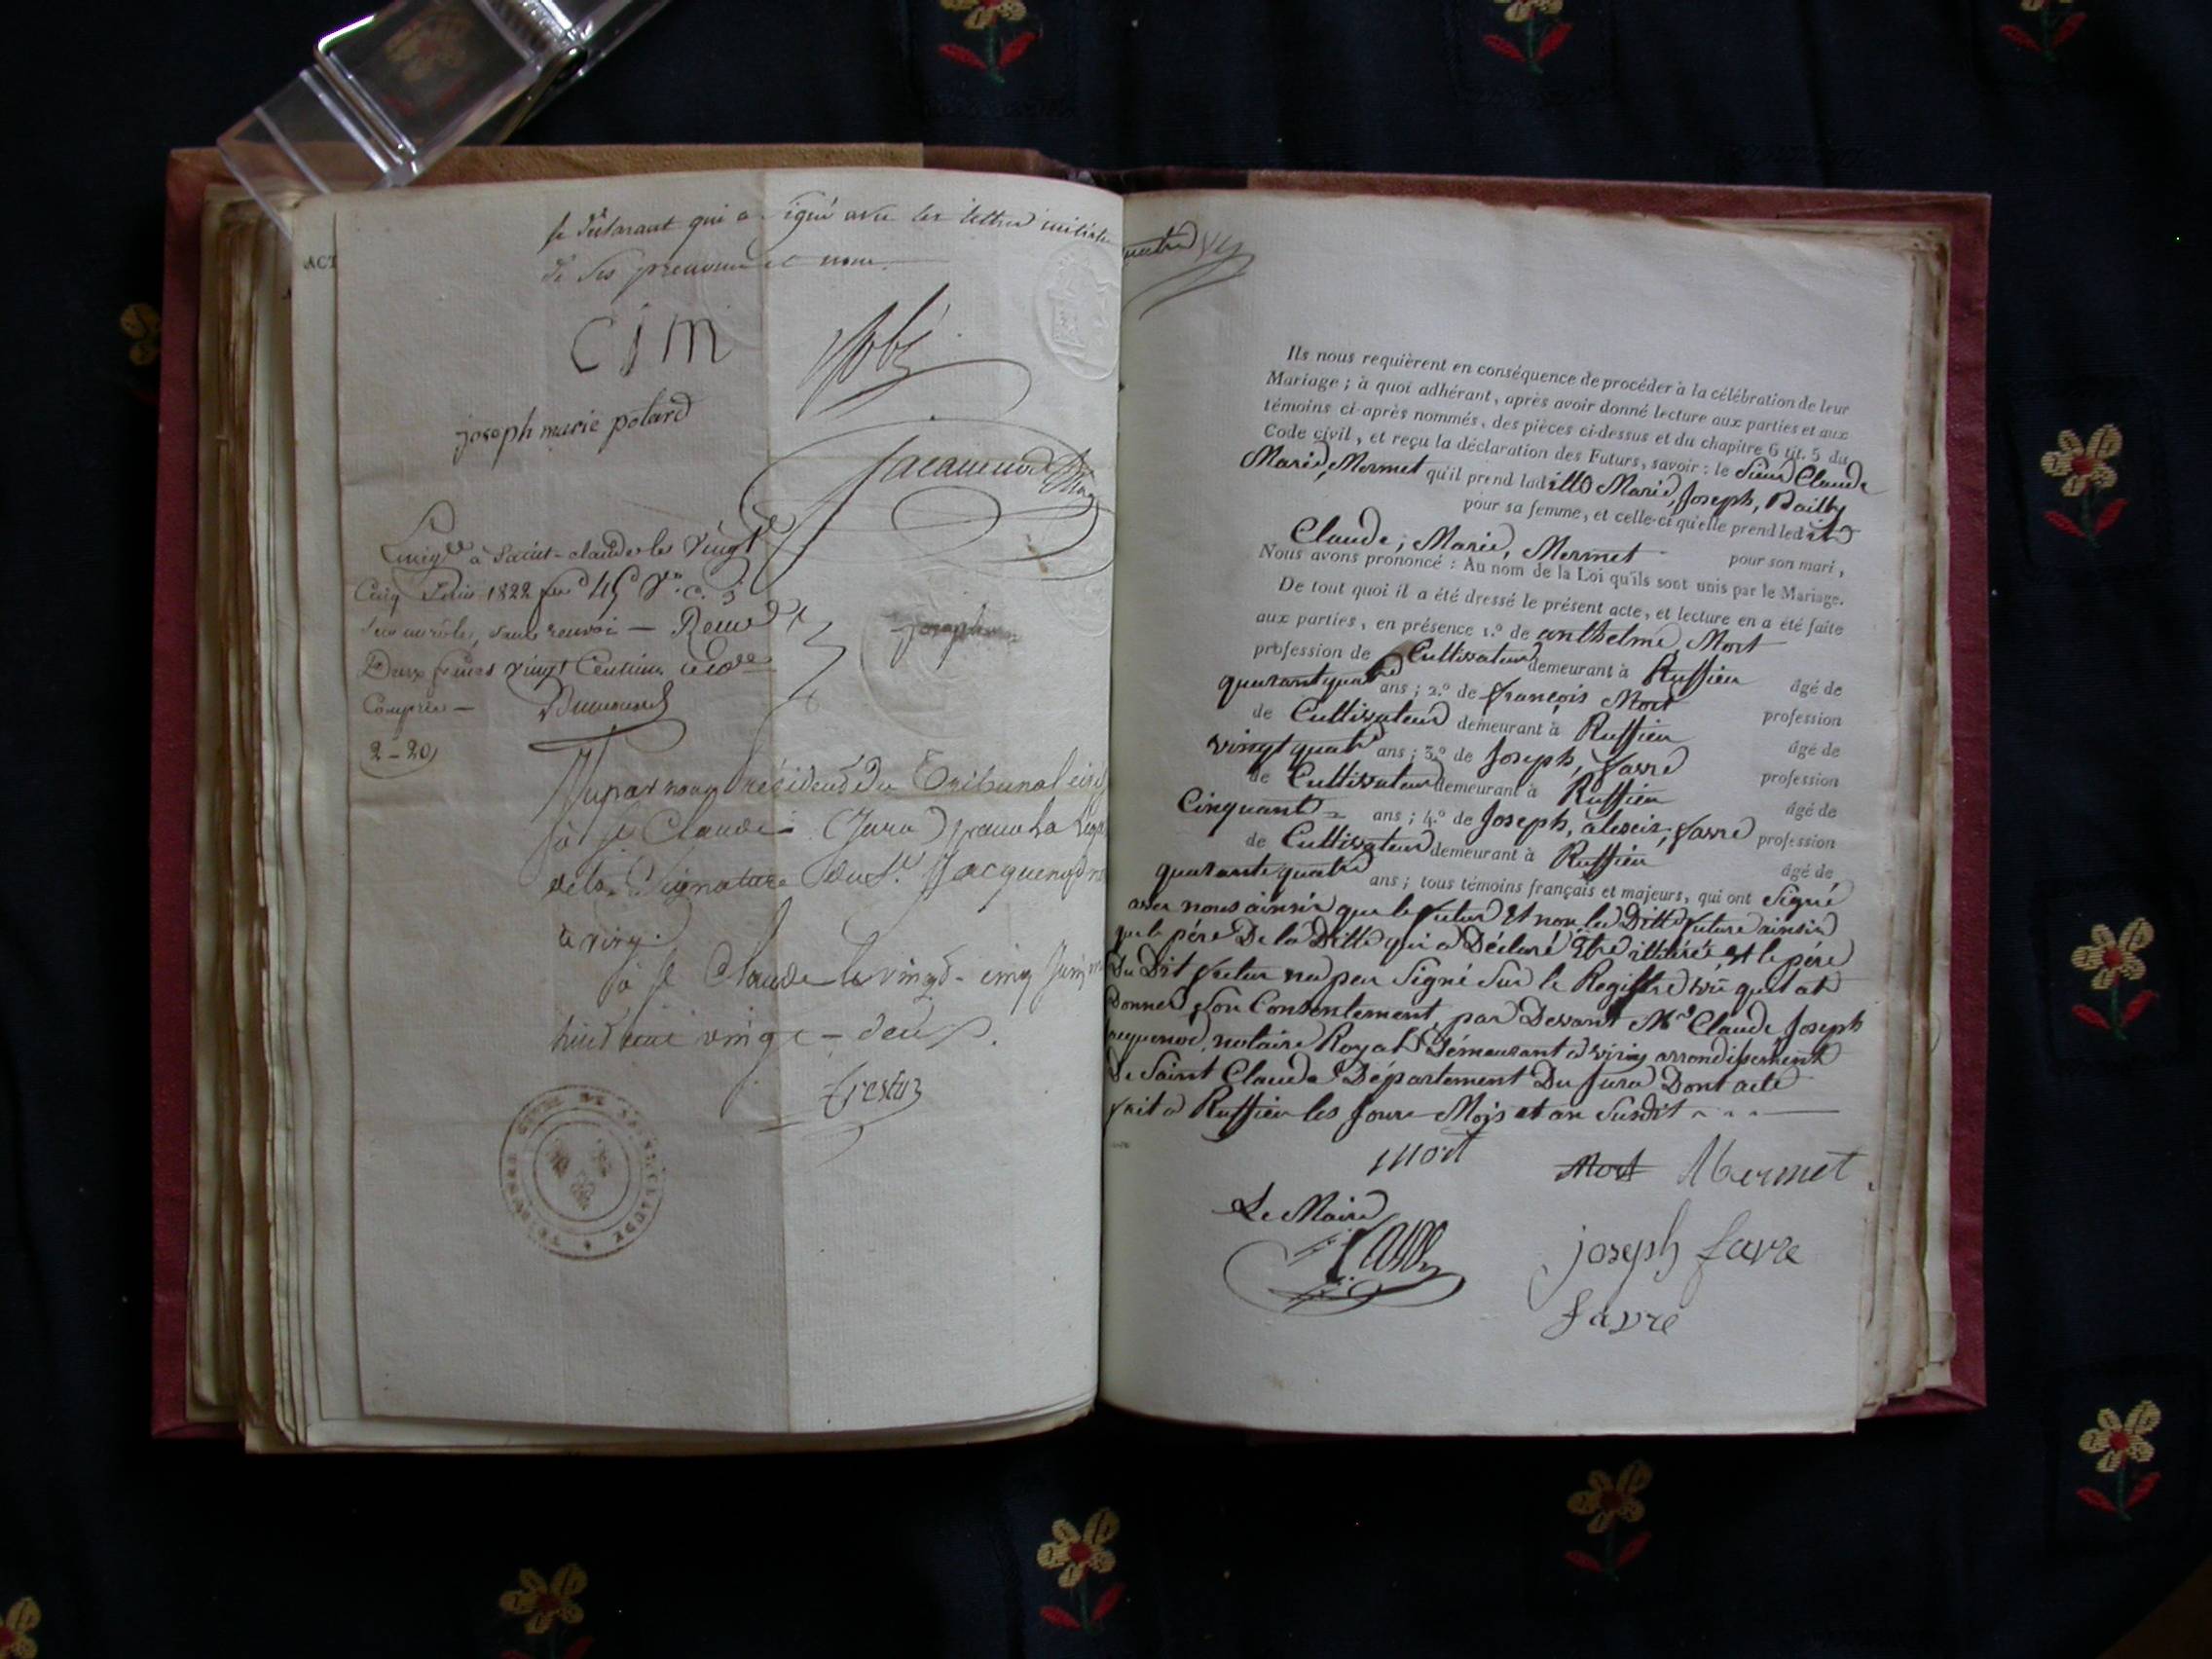 le déclarant qui a signé avec les lettres initiales
de ses prenoms et nom.
ACT
CJM
joseph marie polard
Jacquenod
à Saint-claude le vingt
Cinq Juin 1822 f.o 45 V.o c. 3
un rôle, sans renvoi — Reçu
Deux francs vingt Centimes
Compris —
2-20
Vu par nous Président du Tribunal civil
à St Claude (Jura) pour la
de la Signature du Sr. Jacquenod
à viry.
à St Claude le vingt-cinq Juin
huit cent vingt-deux.
joseph
TRIBUNAL CIVIL DE ST CLAUDE
Ils nous requièrent en conséquence de procéder à la célébration de leur
Mariage ; à quoi adhérant, après avoir donné lecture aux parties et aux
témoins ci-après nommés, des pièces ci-dessus et du chapitre 6 tit. 5 du
Code civil, et reçu la déclaration des Futurs, savoir : le Sieur Claude
Marie, Mermet qu'il prend laditte Marie, Joseph, Bailly
pour sa femme, et celle-ci qu'elle prend ledit
Claude, Marie, Mermet pour son mari,
Nous avons prononcé : Au nom de la Loi qu'ils sont unis par le Mariage.
De tout quoi il a été dressé le présent acte, et lecture en a été faite
aux parties, en présence 1.º de anthelme, Mort
profession de Cultivateur demeurant à Ruffieu âgé de
quarantquatre ans ; 2.º de françois Mort profession
de Cultivateur demeurant à Ruffieu âgé de
vingtquatre ans ; 3.º de Joseph, favre profession
de Cultivateur demeurant à Ruffieu âgé de
Cinquante ans ; 4.º de Joseph, alexis, favre profession
de Cultivateur demeurant à Ruffieu âgé de
quarantequatre ans ; tous témoins français et majeurs, qui ont Signé
avec nous ainsi que le futur Et non la Ditte future ainsi
que le père De la Ditte qui a Déclaré Etre illitéré et le père
Du Dit futur na peu Signé Sur le Registre vû quil at
donner Son Consentement par Devant Mre Claude Joseph
Jacquenod, notaire Royal Démeurant a viriy arrondissement
De Saint Claude Département Du Jura Dont acte
fait a Ruffieu les Jour Mois et an Susdit
mort
Mort Mermet
Le Maire
joseph favre
favre